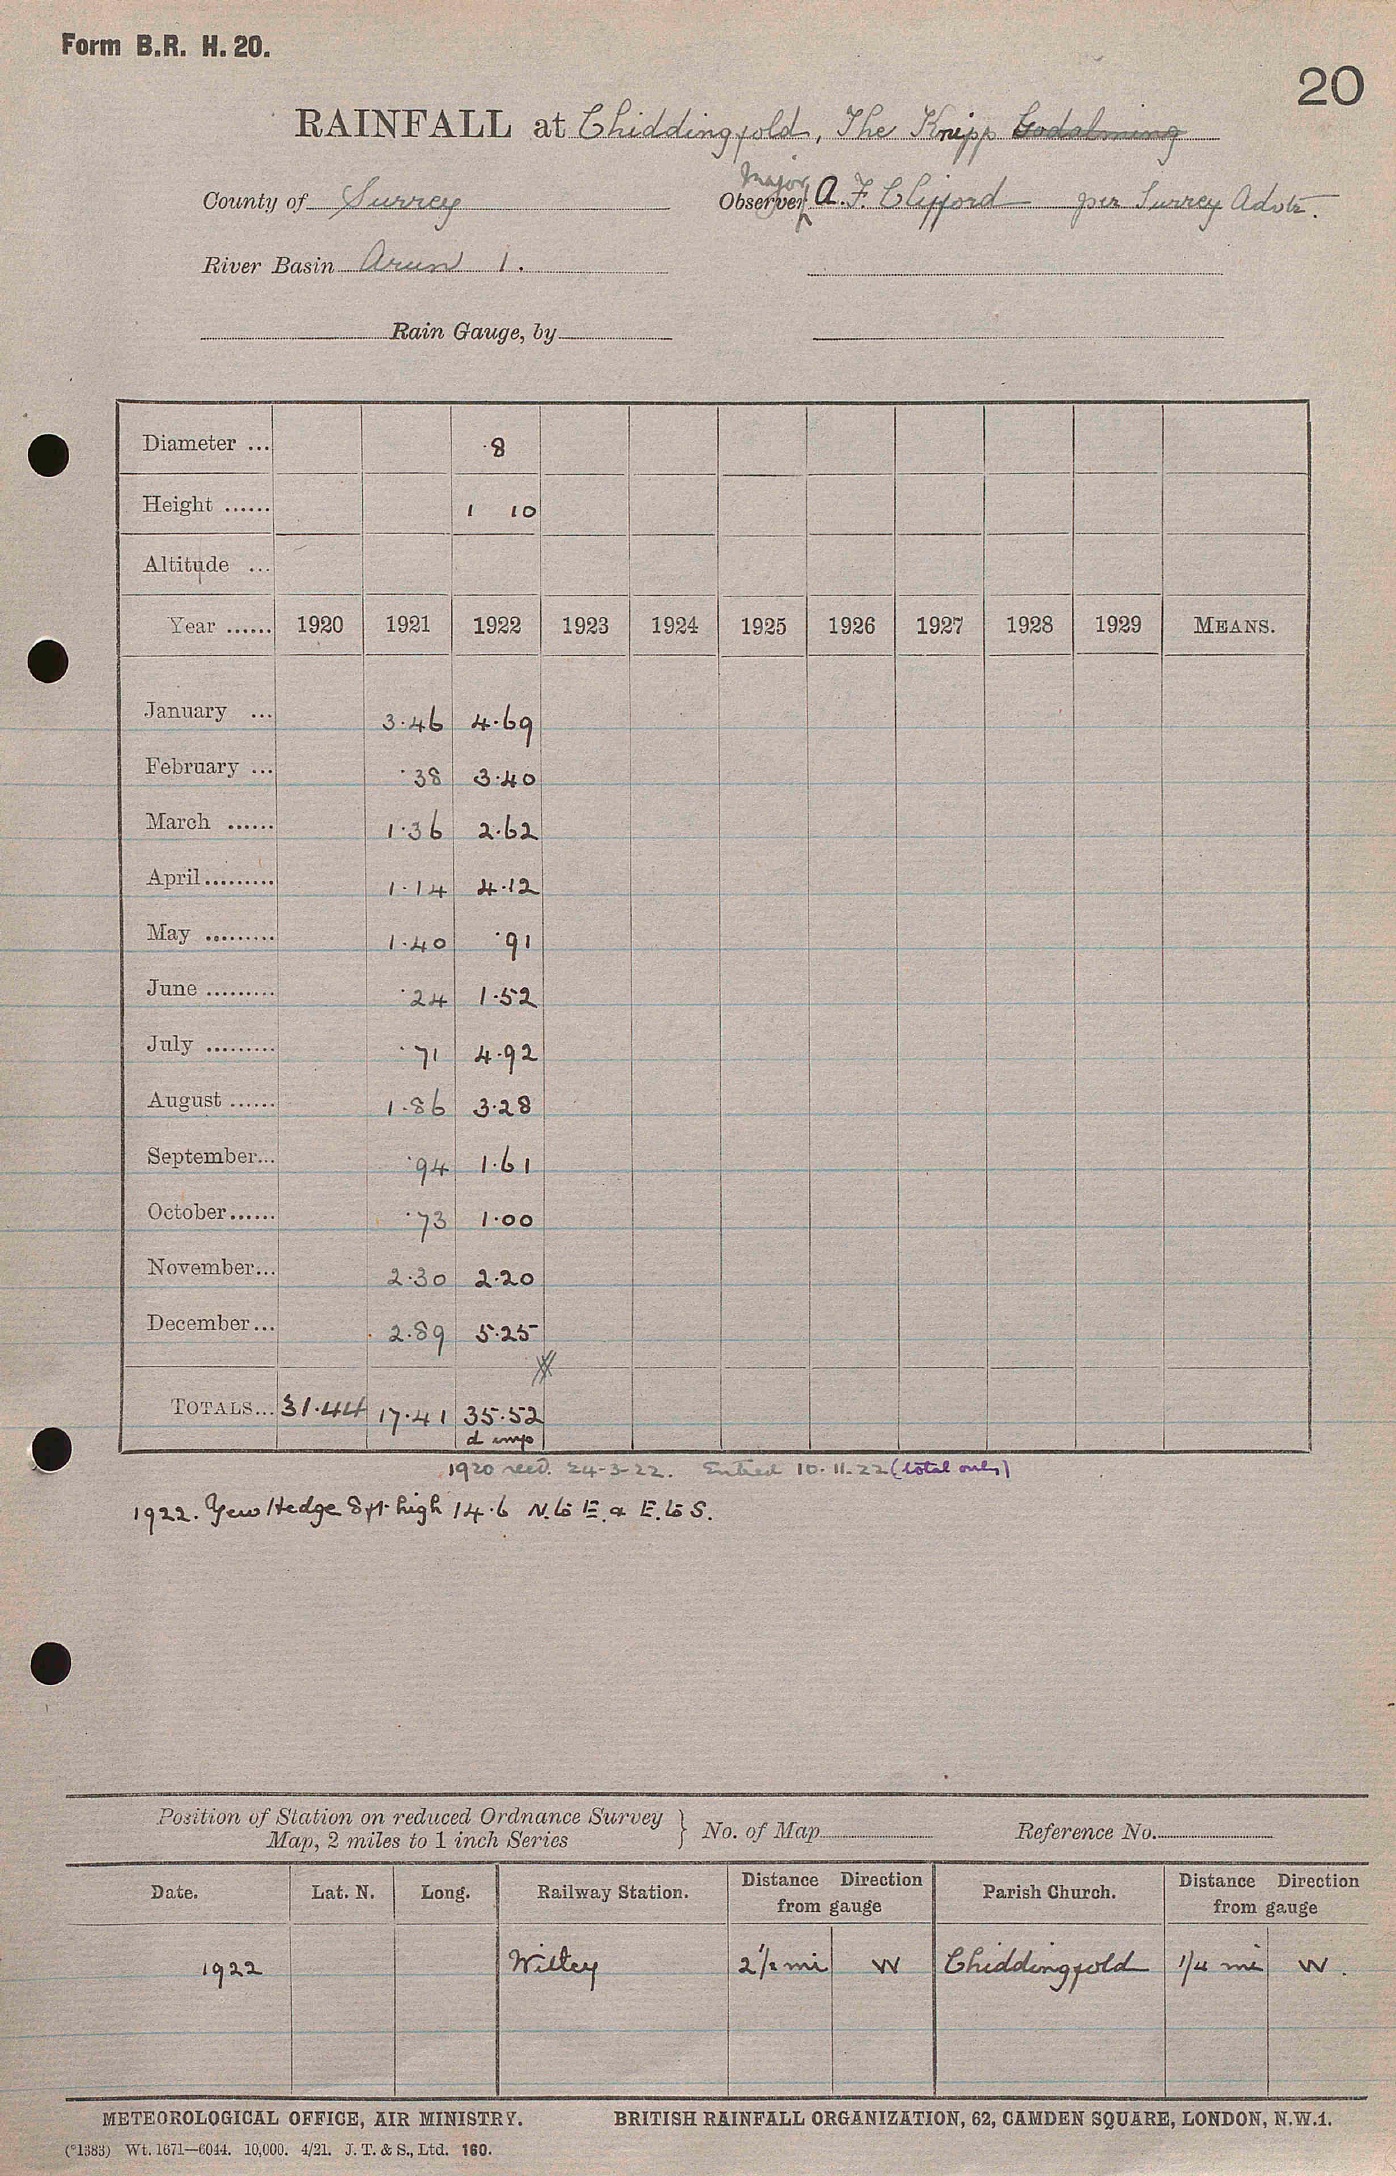 Form B.R. H. 20.
20
RAINFALL at Chiddingfold, The Knipp Godalming
Major
County of Surrey Observer, A. F. Clifford per Surrey Advtr.
River Basin Arun 1.
Rain Gauge, by
Diameter ... 8
Height ...... 1 10
Altitude ...
Year ...... 1920 1921 1922 1923 1924 1925 1926 1927 1928 1929 MEANS.
January ... 3.46 4.69
February ... .38 3.40
March ...... 1.36 2.62
April......... 1.14 4.12
May ......... 1.40 .91
June ......... .24 1.52
July ......... .71 4.92
August ...... 1.86 3.28
September... .94 1.61
October...... .73 1.00
November... 2.30 2.20
December... 2.89 5.25
TOTALS... 31.44 17.41 35.52
d imp
1920 recd. 24-3-22. Entred 10.11.22 (total only)
1922. Yew Hedge 8 ft high 14.6 N. to E. & E. to S.
Position of Station on reduced Ordnance Survey
Map, 2 miles to 1 inch Series } No. of Map Reference No.
Date. Lat. N. Long. Railway Station. Distance Direction from gauge Parish Church. Distance Direction from gauge
1922 Witley 2 1/2 mi W Chiddingfold 1/4 mi W.
METEOROLOGICAL OFFICE, AIR MINISTRY. BRITISH RAINFALL ORGANIZATION, 62, CAMDEN SQUARE, LONDON, N.W.1.
(*1383) Wt. 1671—6044. 10,000. 4/21. J. T. & S., Ltd. 160.